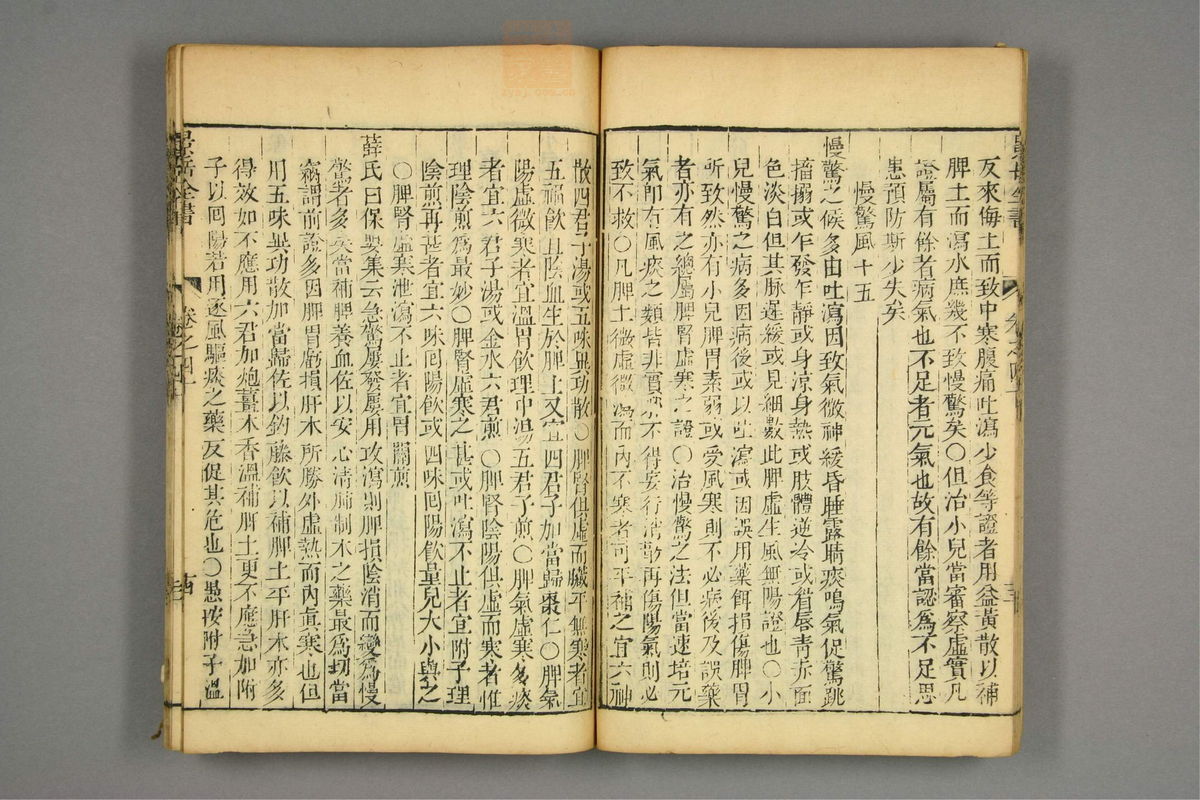 反來侮土而致中寒腹痛吐瀉少食等證者用益黃散以補
脾土而瀉水庶幾不致慢驚矣○但治小兒當審察虛實凡
證屬有餘者病氣也不足者元氣也故有餘當認爲不足思
患預防斯少失矣
慢驚風十五
慢驚之候多由吐瀉因致氣微神緩昏睡露睛痰鳴氣促驚跳
搐搦或乍發乍靜或身涼身熱或肢體逆冷或眉唇青赤面
色淡白但其脉遲緩或見細數此脾虛生風無陽證也○小
兒慢驚之病多因病後或以吐瀉或因誤用藥餌損傷脾胃
所致然亦有小兒脾胃素弱或受風寒則不必病後及誤藥
者亦有之總屬脾腎虛寒之證○治慢驚之法但當速培元
氣卽有風痰之類皆非實邪不得妄行消散再傷陽氣則必
致不救○凡脾土微虛微瀉而內不寒者可平補之宜六神
散四君子湯或五味異功散○脾腎俱虛而臟平無寒者宜
五福飲且陰血生於脾土又宜四君子加當歸棗仁○脾氣
陽虛微寒者宜溫胃飲理中湯五君子煎○脾氣虛寒多痰
者宜六君子湯或金水六君煎○脾腎陰陽俱虛而寒者惟
理陰煎爲最妙○脾腎虛寒之甚或吐瀉不止者宜附子理
陰煎再甚者宜六味囘陽飲或四味囘陽飲量兒大小與之
○脾腎虛寒泄瀉不止者宜胃關煎
薛氏曰保嬰集云急驚屢發屢用攻瀉則脾損陰消而變爲慢
驚者多矣當補脾養血佐以安心清肺制木之藥最爲切當
竊謂前證多因脾胃虧損肝木所勝外虛熱而內眞寒也但
用五味異功散加當歸佐以鈎藤飲以補脾土平肝木亦多
得效如不應用六君加炮薑木香溫補脾土更不應急加附
子以囘陽若用逐風驅痰之藥反促其危也○愚按附子溫
景岳全書
卷之四十